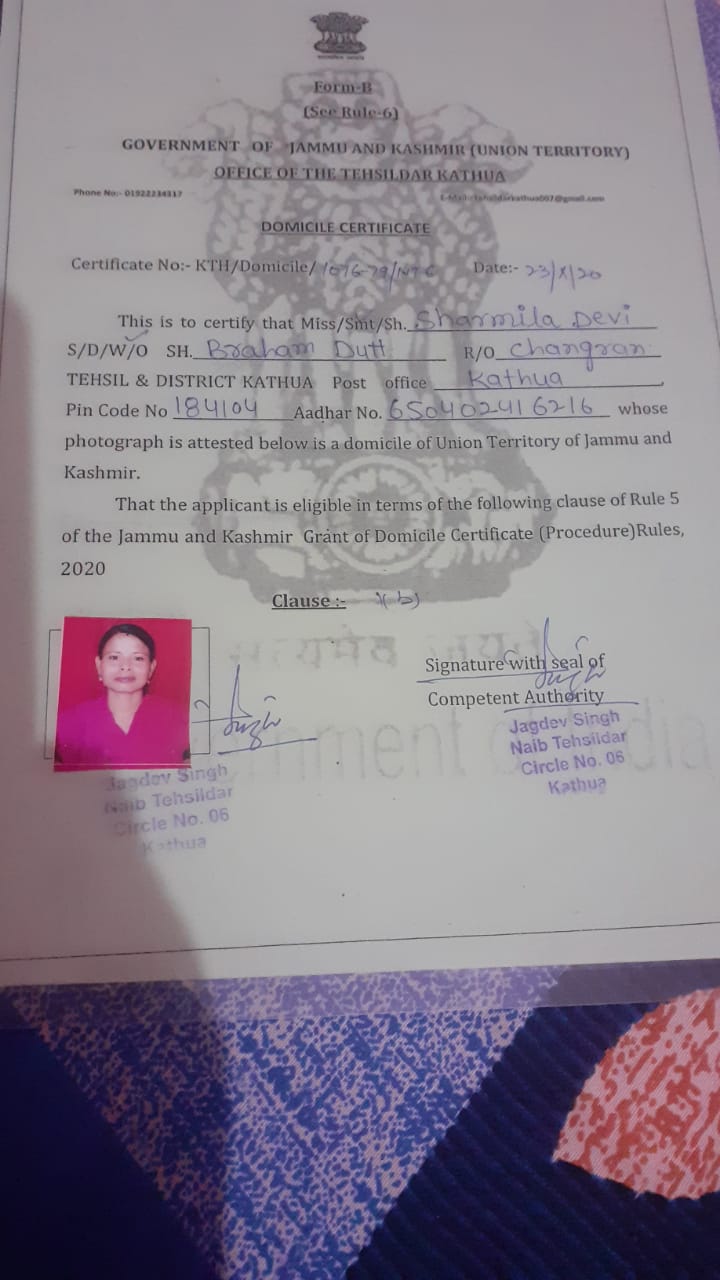 Form-B
(See Rule-6)
GOVERNMENT OF JAMMU AND KASHMIR (UNION TERRITORY)
OFFICE OF THE TEHSILDAR KATHUA
Phone No:- 01922234317 E-Mail:-tehsildarkathua007@gmail.com
DOMICILE CERTIFICATE
Certificate No:- KTH/Domicile/1076-79/NTC Date:- 23/X/20
This is to certify that Miss/Smt/Sh. Sharmila Devi
S/D/W/O SH. Braham Dutt R/O Changran
TEHSIL & DISTRICT KATHUA Post office Kathua,
Pin Code No 184104 Aadhar No. 650402416216 whose
photograph is attested below is a domicile of Union Territory of Jammu and
Kashmir.
That the applicant is eligible in terms of the following clause of Rule 5
of the Jammu and Kashmir Grant of Domicile Certificate (Procedure)Rules,
2020
Clause :- 1(b)
सत्यमेव जयते
Signature with seal of
Competent Authority
Jagdev Singh
Naib Tehsildar
Circle No. 06
Kathua
Jagdev Singh
Naib Tehsildar
Circle No. 06
Kathua